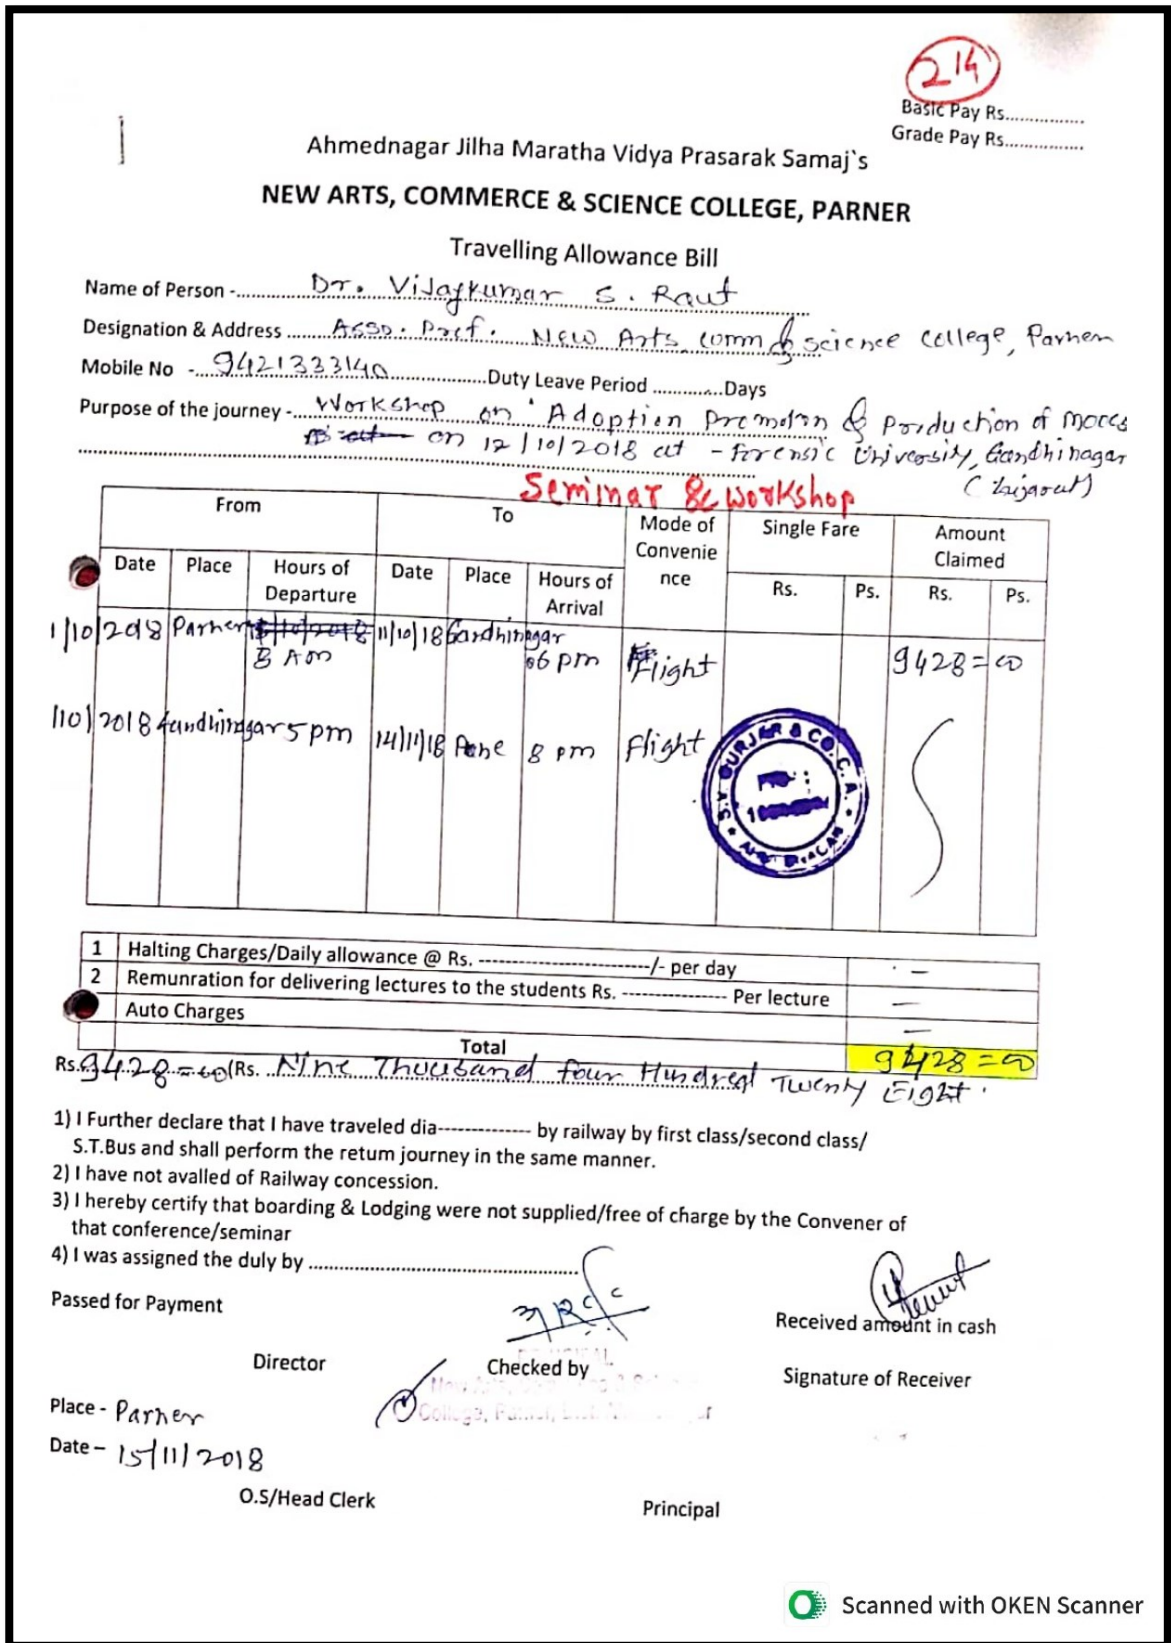 214
Basic Pay Rs................
Grade Pay Rs................
Ahmednagar Jilha Maratha Vidya Prasarak Samaj`s
NEW ARTS, COMMERCE & SCIENCE COLLEGE, PARNER
Travelling Allowance Bill
Name of Person -............ Dr. Vijaykumar S. Raut
Designation & Address ........ Asso. Prof. New Arts comm & science college, Parner
Mobile No -....9421333140..................Duty Leave Period .............Days
Purpose of the journey -... Workshop on 'Adoption Promotion & Production of moocs
on 12/10/2018 at - Forensic University, Gandhinagar
Seminar & workshop
From To Mode of Convenie nce Single Fare Amount Claimed
Date Place Hours of Departure Date Place Hours of Arrival Rs. Ps. Rs. Ps.
1/10/2018 Parner 8 Am 11/10/18 Gandhinagar 06 pm Flight 9428=00
/10/2018 Gandhinagar 5 pm 14/11/18 Pune 8 pm Flight
S.V. GURJAR & CO. C.A.
1 Halting Charges/Daily allowance @ Rs. -------------------------/- per day –
2 Remunration for delivering lectures to the students Rs. ---------------- Per lecture –
Auto Charges –
Total 9428=00
Rs.9428=00(Rs. Nine Thousand four Hundred Twenty Eight.
1) I Further declare that I have traveled dia-------------- by railway by first class/second class/
S.T.Bus and shall perform the retum journey in the same manner.
2) I have not avalled of Railway concession.
3) I hereby certify that boarding & Lodging were not supplied/free of charge by the Convener of
that conference/seminar
4) I was assigned the duly by ..................................................
Passed for Payment
Received amount in cash
Director Checked by Signature of Receiver
Place - Parner
College, Parner,
Date – 15/11/2018
O.S/Head Clerk Principal
Scanned with OKEN Scanner